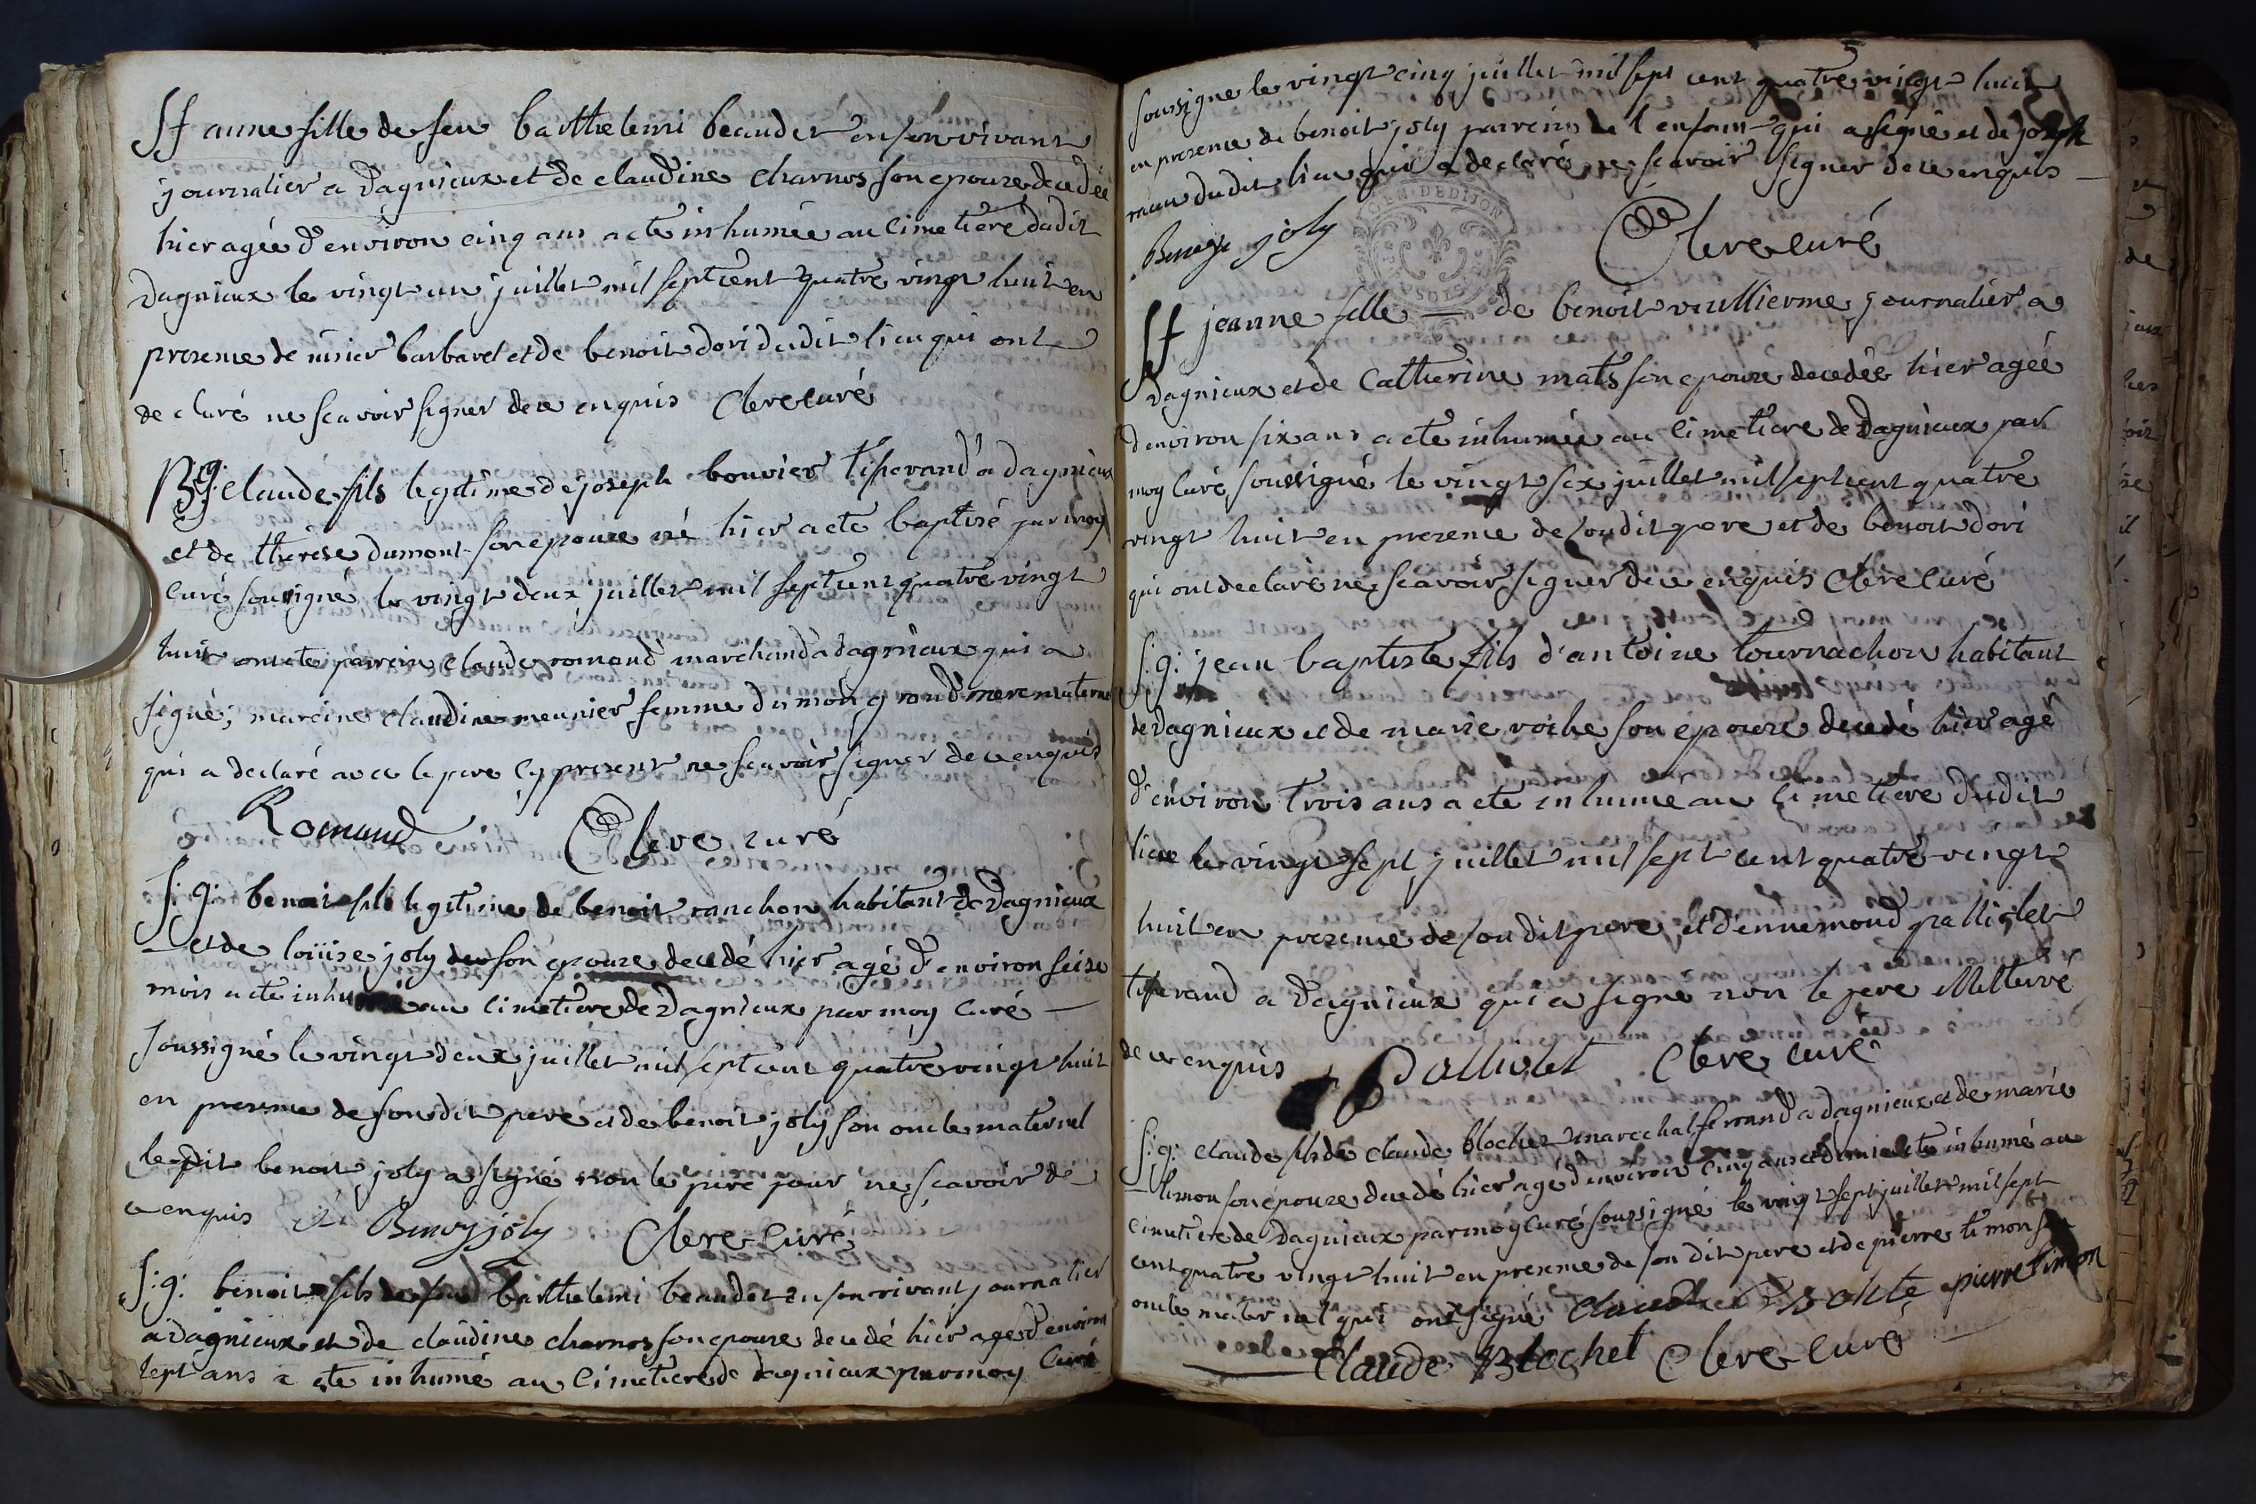 Sf anne fille de feu barthelemi beaudet en son vivant
journalier a dagnieux et de claudine charnos son epouze decedée
hier agée d'environ cinq ans a eté inhumée au cimetiere dudit
dagnieux le vingt un juillet mil sept cent quatre vingt huit en
presence de barbaret et de benoit dori dudit lieu qui ont
declaré ne scavoir signer de ce enquis Clere curé
Bg claude fils legitime de joseph bouvier tisserand a dagnieux
et de therese dumont son epouze né hier a eté baptisé par moy
curé soussigné le vingt deux juillet mil sept cent quatre vingt
huit ont eté parrein claude romand marchand a dagnieux qui a
signé; mareine claudine meunier femme dumont grond mere maternel
qui a declaré avec le pere cy present ne scavoir signer de ce enquis
Romand Clere curé
S:g: benoit fils legitime de benoit ranchon habitant de dagnieux
et de loüise joly son epouze decedé hier agé d'environ seize
mois a eté inhumé au cimetiere de dagnieux par moy curé
soussigné le vingt deux juillet mil sept cent quatre vingt huit
en presence de son dit pere et de benoit joly son oncle maternel
le dit benoit joly a signé non le pere pour ne scavoir de
ce enquis Benoy joly Clere curé
S:g: benoit fils de feu barthelemi beaudet en son vivant journalier
a dagnieux et de claudine charnos son epouze decedé hier agé d'environ
sept ans a eté inhumé au cimetiere de dagnieux par moy curé
soussigné le vingt cinq juillet mil sept cent quatre vingt huit
en presence de benoit joly parrein de l'enfant qui a signé et de joseph
dudit lieu qui a declaré ne scavoir signer de ce enquis
Benoy joly Clere curé
Sf jeanne fille de benoit vullierme journalier a
dagnieux et de catherine mats son epouze decedée hier agée
d'environ six ans a eté inhumée au cimetiere de dagnieux par
moy curé soussigné le vingt six juillet mil sept cent quatre
vingt huit en presence de son dit pere et de benoit dori
qui ont declaré ne scavoir signer de ce enquis Clere curé
S:g: jean baptiste fils d'antoine tournachon habitant
de dagnieux et de marie roche son epouze decedé hier agé
d'environ trois ans a eté inhumé au cimetiere dudit
lieu le vingt sept juillet mil sept cent quatre vingt
huit en presence de son dit pere et d'ennemond palliolet
tisserand a dagnieux qui a signé non le pere illiteré
de ce enquis Palliolet Clere curé
S:g: claude fils de claude blochet marechal ferrand a dagnieux et de marie
timon son epouze decedé hier agé d'environ cinq ans et demi a eté inhumé au
cimetiere de dagnieux par moy curé soussigné le vingt sept juillet mil sept
cent quatre vingt huit en presence de son dit pere et de pierre timon son
oncle maternel qui ont signé pierre timon
Claude Blochet Clere curé